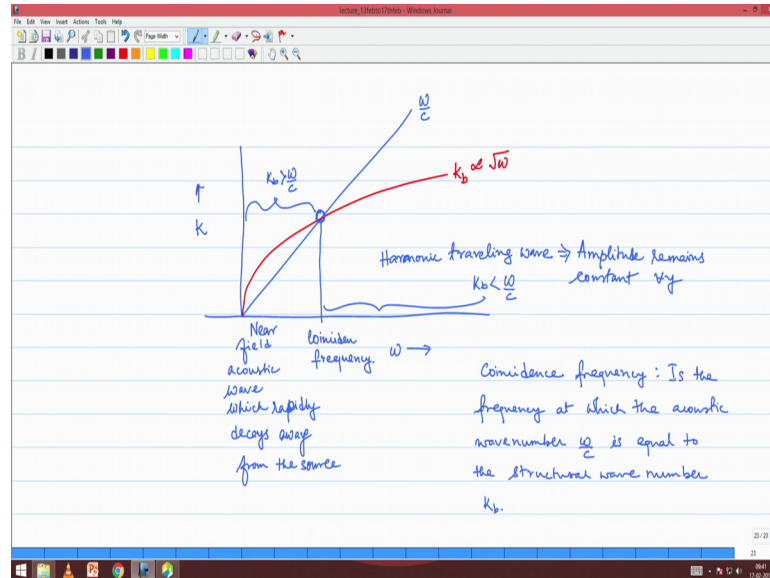 lecture_13febto17thfeb - Windows Journal
File Edit View Insert Actions Tools Help
Page Width
B I
ω/c
k_b ∝ √ω
k_b > ω/c
↑
k
Harmonic traveling wave ⇒ Amplitude remains
constant ∀y
k_b < ω/c
Near
field
acoustic
wave
which rapidly
decays away
from the source
Coinciden
frequency
ω →
Coincidence frequency : Is the
frequency at which the acoustic
wavenumber ω/c is equal to
the structural wave number
k_b.
23 / 23
23
09:41